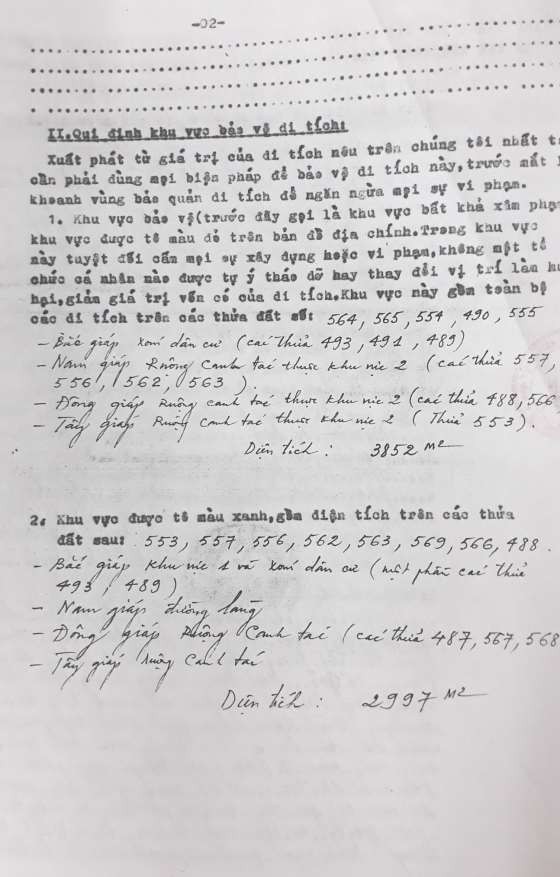 -02-
II.Qui định khu vực bảo vệ di tích:
Xuất phát từ giá trị của di tích nêu trên chúng tôi nhất
cần phải dùng mọi biện pháp để bảo vệ di tích này,trước mắt
khoanh vùng bảo quản di tích để ngăn ngừa mọi sự vi phạm.
1. Khu vực bảo vệ(trước đây gọi là khu vực bất khả xâm phạm
khu vực được tô màu đỏ trên bản đồ địa chính.Trong khu vực
này tuyệt đối cấm mọi sự xây dựng hoặc vi phạm,không một tổ
chức cá nhân nào được tự ý tháo dỡ hay thay đổi vị trí làm hư
hại,giảm giá trị vốn có của di tích.Khu vực này gồm toàn bộ
các di tích trên các thửa đất số: 564, 565, 554, 490, 555
- Bắc giáp xóm dân cư (các thửa 493, 491, 489)
- Nam giáp Ruộng canh tác thuộc khu vực 2 (các thửa 557,
556, 562, 563).
- Đông giáp ruộng canh tác thuộc khu vực 2 (các thửa 488, 566
- Tây giáp Ruộng canh tác thuộc khu vực 2 (Thửa 553).
Diện tích : 3852 M2
2. Khu vực được tô màu xanh,gồm diện tích trên các thửa
đất sau: 553, 557, 556, 562, 563, 569, 566, 488.
- Bắc giáp khu vực 1 và xóm dân cư (một phần các thửa
493, 489)
- Nam giáp đường làng
- Đông giáp Ruộng canh tác (các thửa 487, 567, 568
- Tây giáp ruộng canh tác
Diện tích : 2997 M2